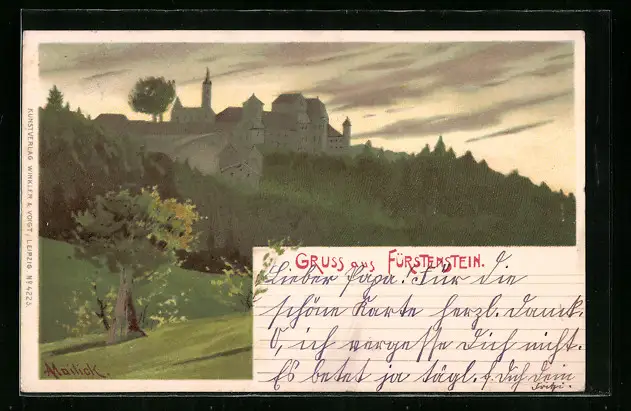 KUNSTVERLAG WINKLER & VOIGT, LEIPZIG No 4223
GRUSS aus FÜRSTENSTEIN.
Lieber Papa! Für die
schöne Karte herzl. Dank.
O, ich vergesse Dich nicht.
Es betet ja tägl. f. Dich Dein
Fritzi.